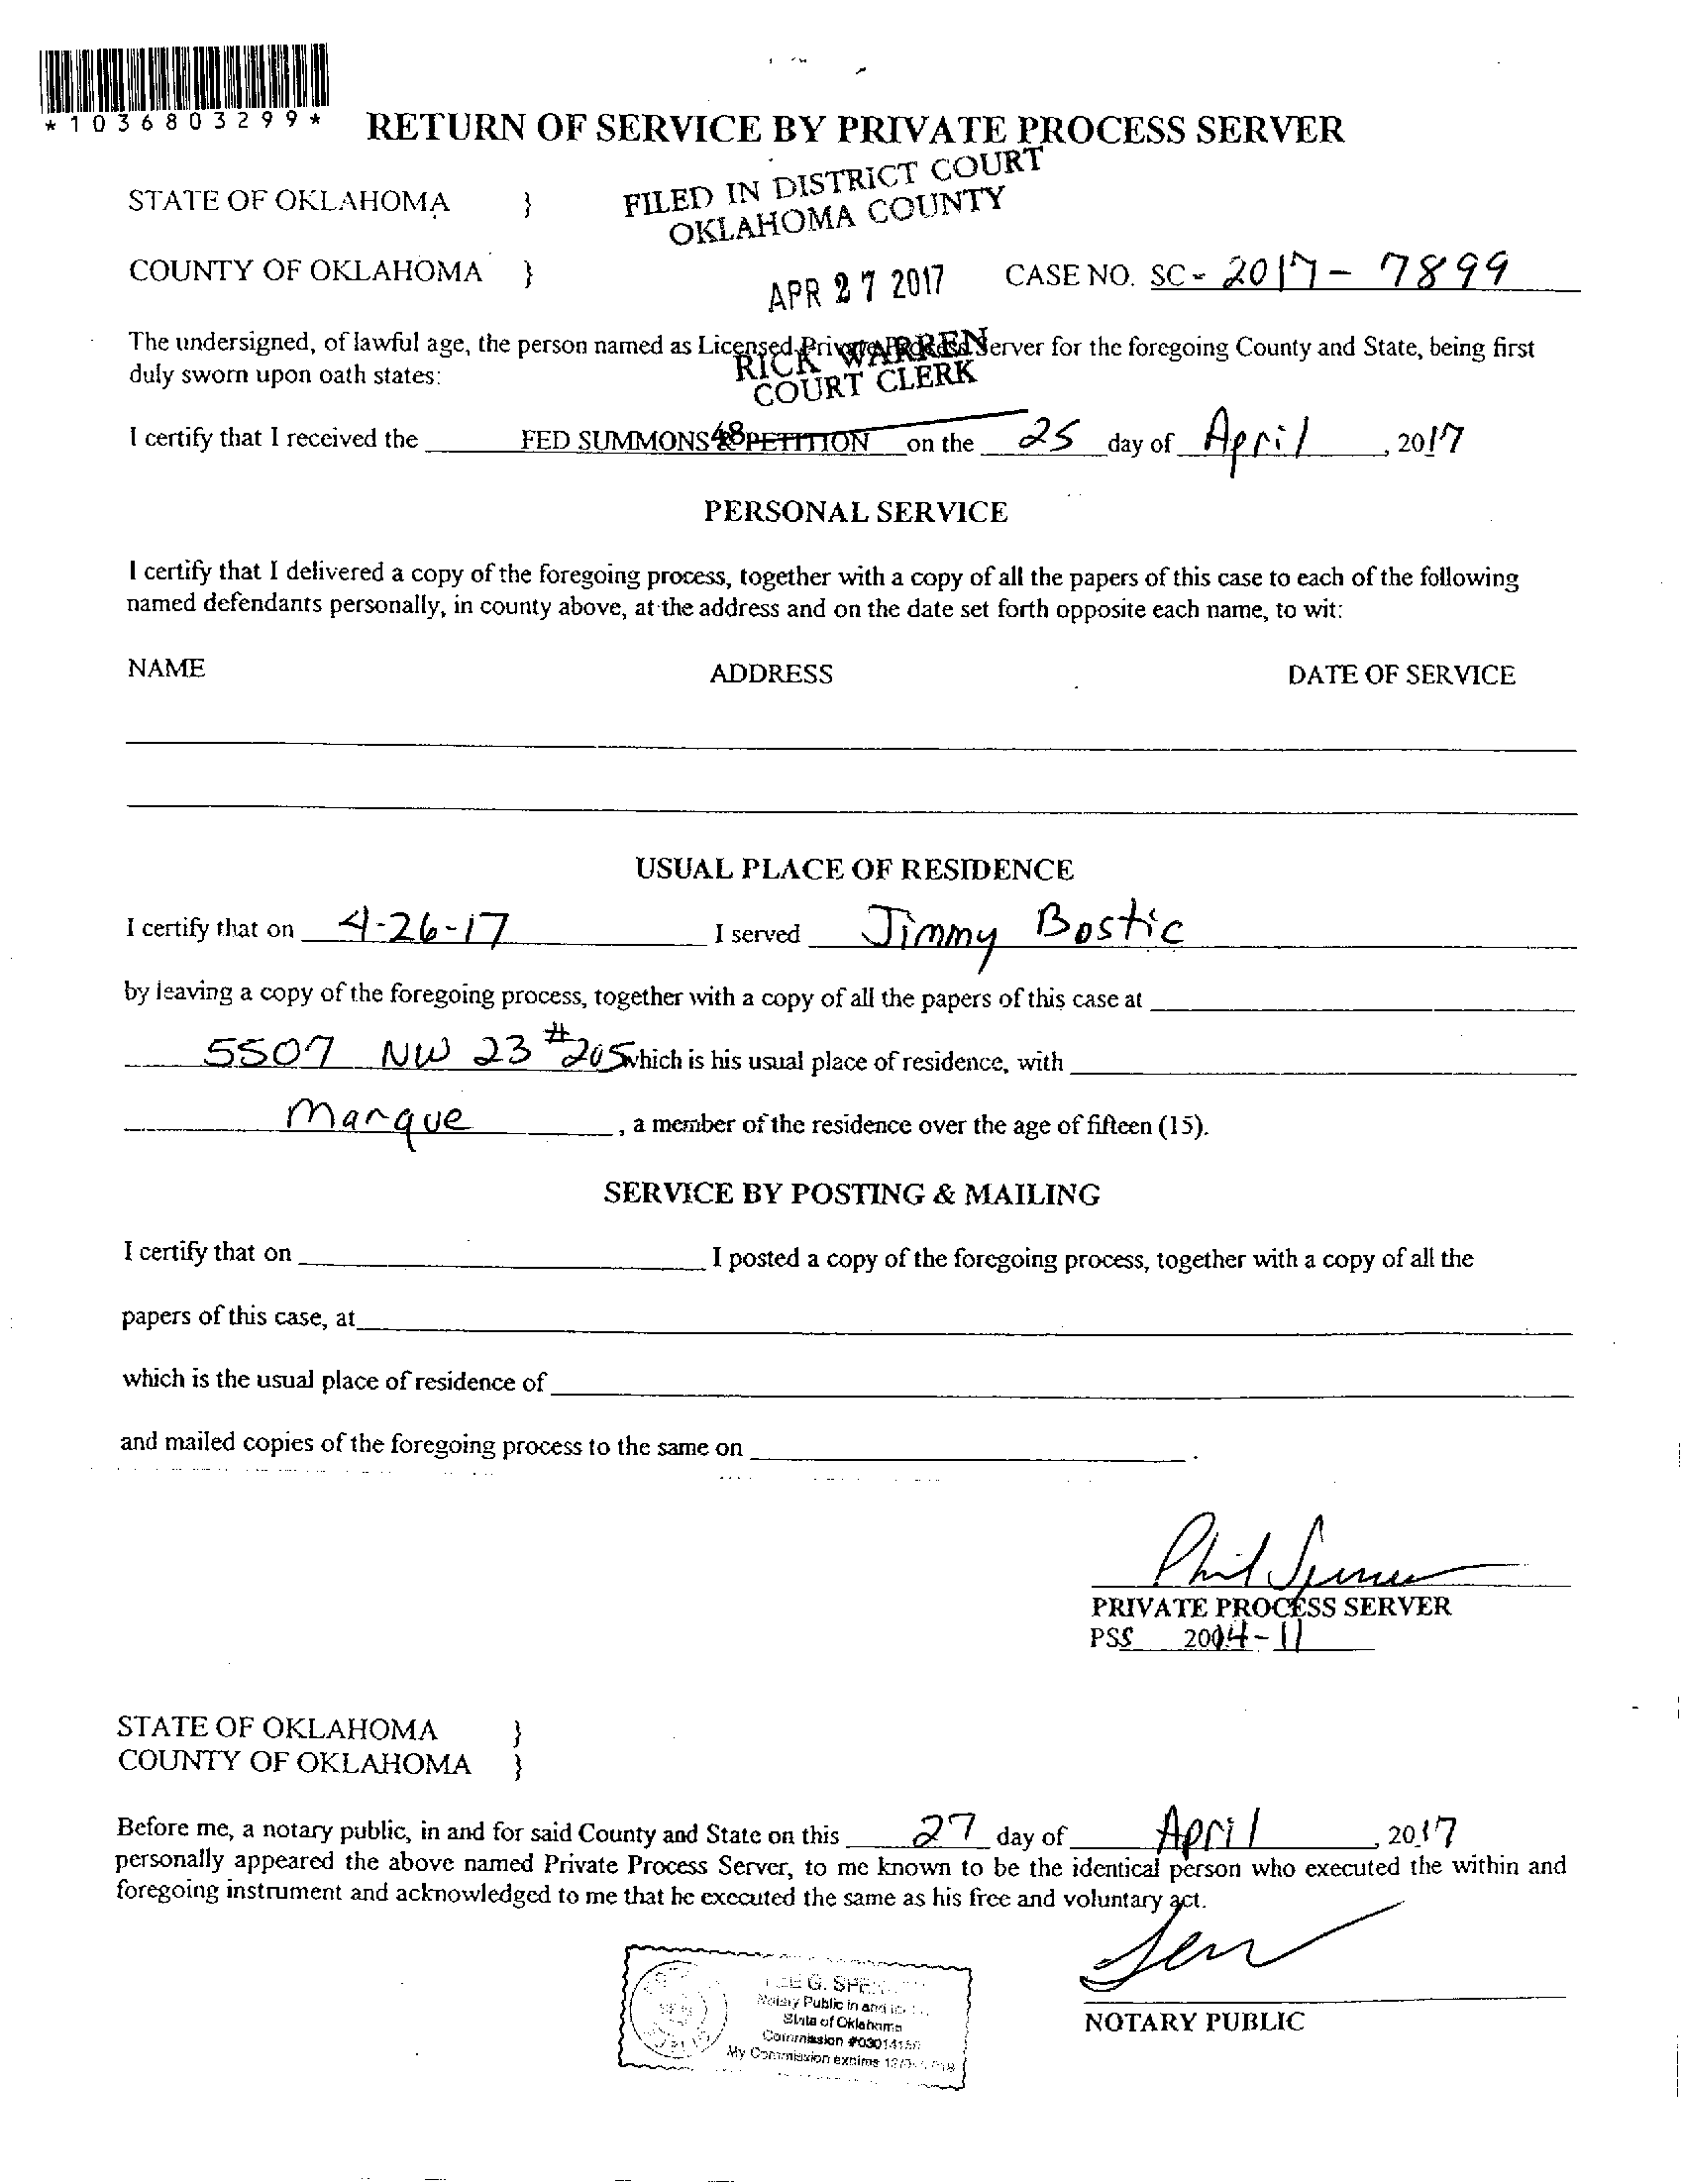 *1036803299*
RETURN OF SERVICE BY PRIVATE PROCESS SERVER
FILED IN DISTRICT COURT
OKLAHOMA COUNTY
STATE OF OKLAHOMA }
COUNTY OF OKLAHOMA }
APR 27 2017
CASE NO. SC - 2017 - 7899
The undersigned, of lawful age, the person named as Licensed Private Process Server for the foregoing County and State, being first
duly sworn upon oath states:
RICK WARREN
COURT CLERK
I certify that I received the FED SUMMONS & PETITION 48 on the 25 day of April, 2017
PERSONAL SERVICE
I certify that I delivered a copy of the foregoing process, together with a copy of all the papers of this case to each of the following
named defendants personally, in county above, at the address and on the date set forth opposite each name, to wit:
NAME ADDRESS DATE OF SERVICE
USUAL PLACE OF RESIDENCE
I certify that on 4-26-17 I served Jimmy Bostic
by leaving a copy of the foregoing process, together with a copy of all the papers of this case at
5507 NW 23 #205 which is his usual place of residence, with
Marque, a member of the residence over the age of fifteen (15).
SERVICE BY POSTING & MAILING
I certify that on I posted a copy of the foregoing process, together with a copy of all the
papers of this case, at
which is the usual place of residence of
and mailed copies of the foregoing process to the same on .
Phil Spencer
PRIVATE PROCESS SERVER
PSS 2004-11
STATE OF OKLAHOMA }
COUNTY OF OKLAHOMA }
Before me, a notary public, in and for said County and State on this 27 day of April, 2017
personally appeared the above named Private Process Server, to me known to be the identical person who executed the within and
foregoing instrument and acknowledged to me that he executed the same as his free and voluntary act.
G.
Notary Public in and
State of Oklahoma
Commission
My Commission expires
NOTARY PUBLIC